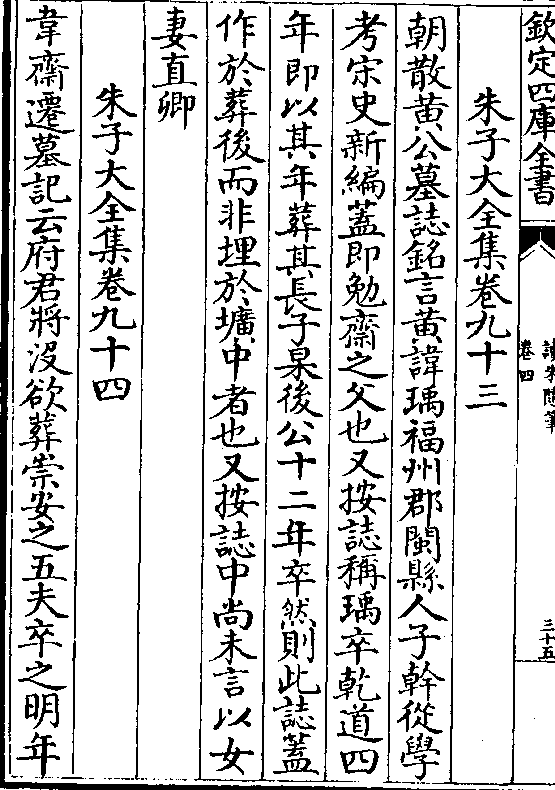 欽定四庫全書
讀朱隨筆
卷四
三十五
朱子大全集卷九十三
朝散黄公墓誌銘言黄諱瑀福州郡閩縣人子幹從學
考宋史新編蓋即勉齋之父也又按誌稱瑀卒乾道四
年即以其年葬其長子杲後公十二年卒然則此誌蓋
作於葬後而非埋於壙中者也又按誌中尚未言以女
妻直卿
朱子大全集卷九十四
韋齋遷墓記云府君將没欲葬崇安之五夫卒之明年